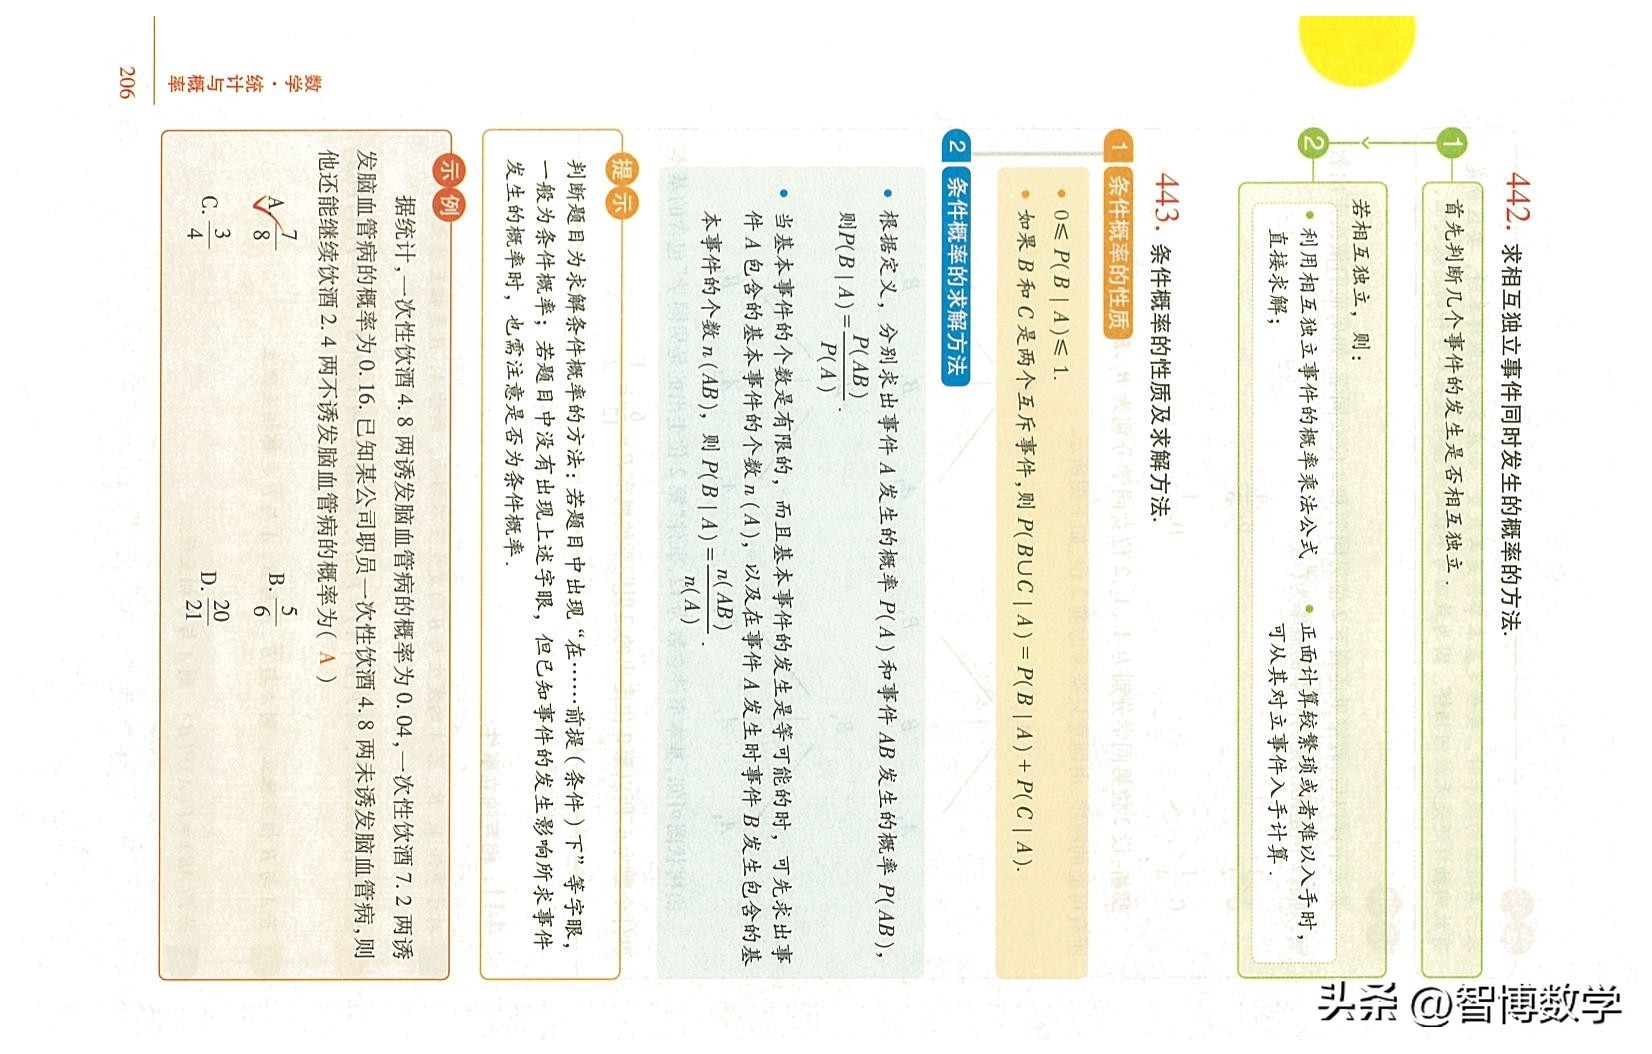 442. 求相互独立事件同时发生的概率的方法.
1
首先判断几个事件的发生是否相互独立.
2
若相互独立，则：
• 利用相互独立事件的概率乘法公式
直接求解；
• 正面计算较繁琐或者难以入手时，
可从其对立事件入手计算.
443. 条件概率的性质及求解方法.
1 条件概率的性质
• 0≤P(B|A)≤1.
• 如果B和C是两个互斥事件，则P(B∪C|A)=P(B|A)+P(C|A).
2 条件概率的求解方法
• 根据定义，分别求出事件A发生的概率P(A)和事件AB发生的概率P(AB)，
则P(B|A)=P(AB)/P(A).
• 当基本事件的个数是有限的，而且基本事件的发生是等可能的时，可先求出事
件A包含的基本事件的个数n(A)，以及在事件A发生时事件B发生包含的基
本事件的个数n(AB)，则P(B|A)=n(AB)/n(A).
提示
判断题目为求解条件概率的方法：若题目中出现“在……前提(条件)下”等字眼，
一般为条件概率；若题目中没有出现上述字眼，但已知事件的发生影响所求事件
发生的概率时，也需注意是否为条件概率.
示例
据统计，一次性饮酒4.8两诱发脑血管病的概率为0.04，一次性饮酒7.2两诱
发脑血管病的概率为0.16.已知某公司职员一次性饮酒4.8两未诱发脑血管病，则
他还能继续饮酒2.4两不诱发脑血管病的概率为( A )
A. 7/8 B. 5/6
C. 3/4 D. 20/21
数学·统计与概率
206
头条 @智博数学